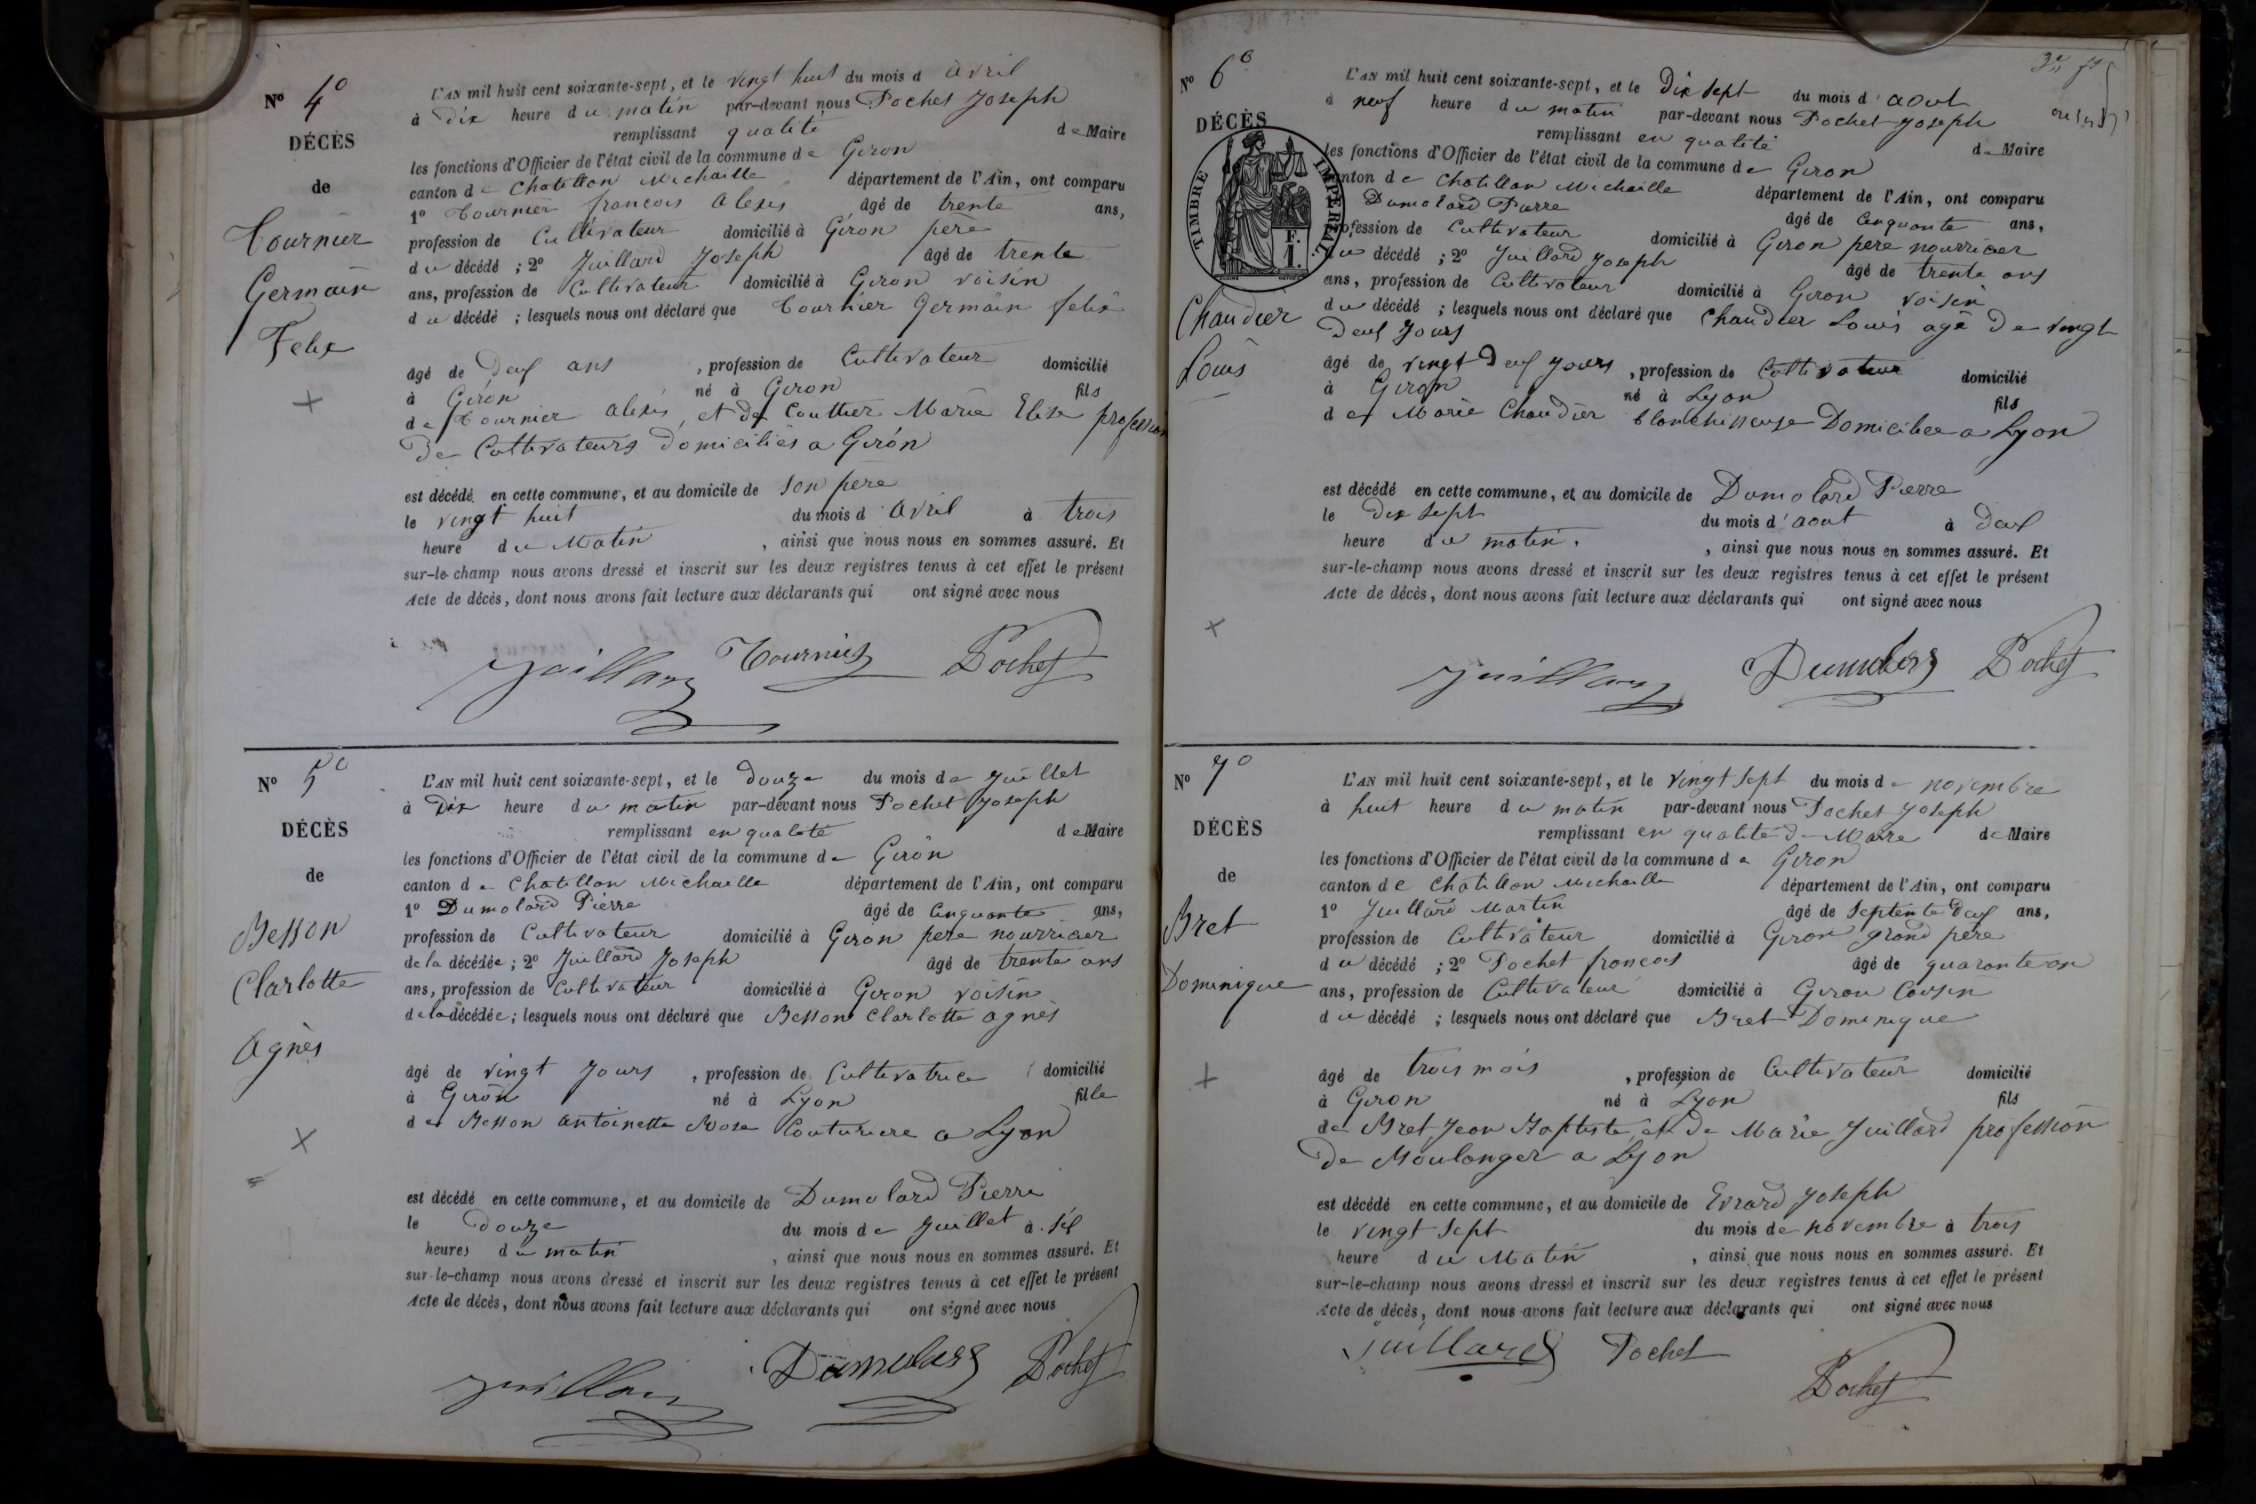 N° 4°
DÉCÈS
de
Tournier
Germain
Felix
L'AN mil huit cent soixante-sept, et le vingt huit du mois d avril
à Dix heure du matin par-devant nous Pochet Joseph
remplissant qualité de Maire
les fonctions d'Officier de l'état civil de la commune de Giron
canton de Chatillon Michaille département de l'Ain, ont comparu
1° Tournier francois alexis âgé de trente ans,
profession de Cultivateur domicilié à Giron pere
du décédé ; 2° Juillard Joseph âgé de trente
ans, profession de Cultivateur domicilié à Giron voisin
du décédé ; lesquels nous ont déclaré que Tournier Germain felix
âgé de Deux ans , profession de Cultivateur domicilié
à Giron né à Giron fils
de Tournier alexis et de Couttier Marie Elise profession
De Cultivateurs Domiciliés a Giron
est décédé en cette commune, et au domicile de son pere
le vingt huit du mois d avril à trois
heure du Matin , ainsi que nous nous en sommes assuré. Et
sur-le-champ nous avons dressé et inscrit sur les deux registres tenus à cet effet le présent
Acte de décès, dont nous avons fait lecture aux déclarants qui ont signé avec nous
Juillard Tournier Pochet
N° 5°
DÉCÈS
de
Besson
Clarlotte
Agnès
L'AN mil huit cent soixante-sept, et le douze du mois de Juillet
à Dix heure du matin par-devant nous Pochet Joseph
remplissant en qualité de Maire
les fonctions d'Officier de l'état civil de la commune de Giron
canton de Chatillon Michaille département de l'Ain, ont comparu
1° Dumolard Pierre âgé de Cinquante ans,
profession de Cultivateur domicilié à Giron pere nourricier
de la décédée ; 2° Juillard Joseph âgé de trente ans
ans, profession de Cultivateur domicilié à Giron voisin
de la décédée ; lesquels nous ont déclaré que Besson Clarlotte agnès
âgé de vingt Jours , profession de Cultivatrice domicilié
à Giron né à Lyon fille
de Besson antoinette Rose Couturiere a Lyon
est décédé en cette commune, et au domicile de Dumolard Pierre
le douze du mois de Juillet à six
heures du matin , ainsi que nous nous en sommes assuré. Et
sur-le-champ nous avons dressé et inscrit sur les deux registres tenus à cet effet le présent
Acte de décès, dont nous avons fait lecture aux déclarants qui ont signé avec nous
Juillard Dumolard Pochet
N° 6°
DÉCÈS
TIMBRE IMPÉRIAL
F.
1.
Chaudier
Louis
L'AN mil huit cent soixante-sept, et le Dix sept du mois d'aout
à neuf heure du matin par-devant nous Pochet Joseph
remplissant en qualité de Maire
les fonctions d'Officier de l'état civil de la commune de Giron
canton de Chatillon Michaille département de l'Ain, ont comparu
Dumolard Pierre âgé de Cinquante ans,
profession de Cultivateur domicilié à Giron pere nourricier
du décédé ; 2° Juillard Joseph âgé de trente ans
ans, profession de Cultivateur domicilié à Giron voisin
du décédé ; lesquels nous ont déclaré que Chaudier Louis agé De vingt
Deux Jours
âgé de vingt Deux Jours , profession de Cultivateur domicilié
à Giron né à Lyon fils
de Marie Chaudier blanchisseuse Domiciliee a Lyon
est décédé en cette commune, et au domicile de Dumolard Pierre
le Dix sept du mois d'aout à Deux
heure du matin , ainsi que nous nous en sommes assuré. Et
sur-le-champ nous avons dressé et inscrit sur les deux registres tenus à cet effet le présent
Acte de décès, dont nous avons fait lecture aux déclarants qui ont signé avec nous
Juillard Dumolard Pochet
N° 7°
DÉCÈS
de
Bret
Dominique
L'AN mil huit cent soixante-sept, et le vingt sept du mois de novembre
à huit heure du matin par-devant nous Pochet Joseph
remplissant en qualité De Maire de Maire
les fonctions d'Officier de l'état civil de la commune de Giron
canton de Chatillon Michaille département de l'Ain, ont comparu
1° Juillard Martin âgé de septente Deux ans,
profession de Cultivateur domicilié à Giron grand pere
du décédé ; 2° Pochet francois âgé de quarante an
ans, profession de Cultivateur domicilié à Giron Cousin
du décédé ; lesquels nous ont déclaré que Bret Dominique
âgé de trois mois , profession de Cultivateur domicilié
à Giron né à Lyon fils
de Bret Jean Baptiste et de Marie Juillard profession
De Boulanger a Lyon
est décédé en cette commune, et au domicile de Evrard Joseph
le vingt sept du mois de novembre à trois
heure du Matin , ainsi que nous nous en sommes assuré. Et
sur-le-champ nous avons dressé et inscrit sur les deux registres tenus à cet effet le présent
Acte de décès, dont nous avons fait lecture aux déclarants qui ont signé avec nous
Juillard Pochet
Pochet